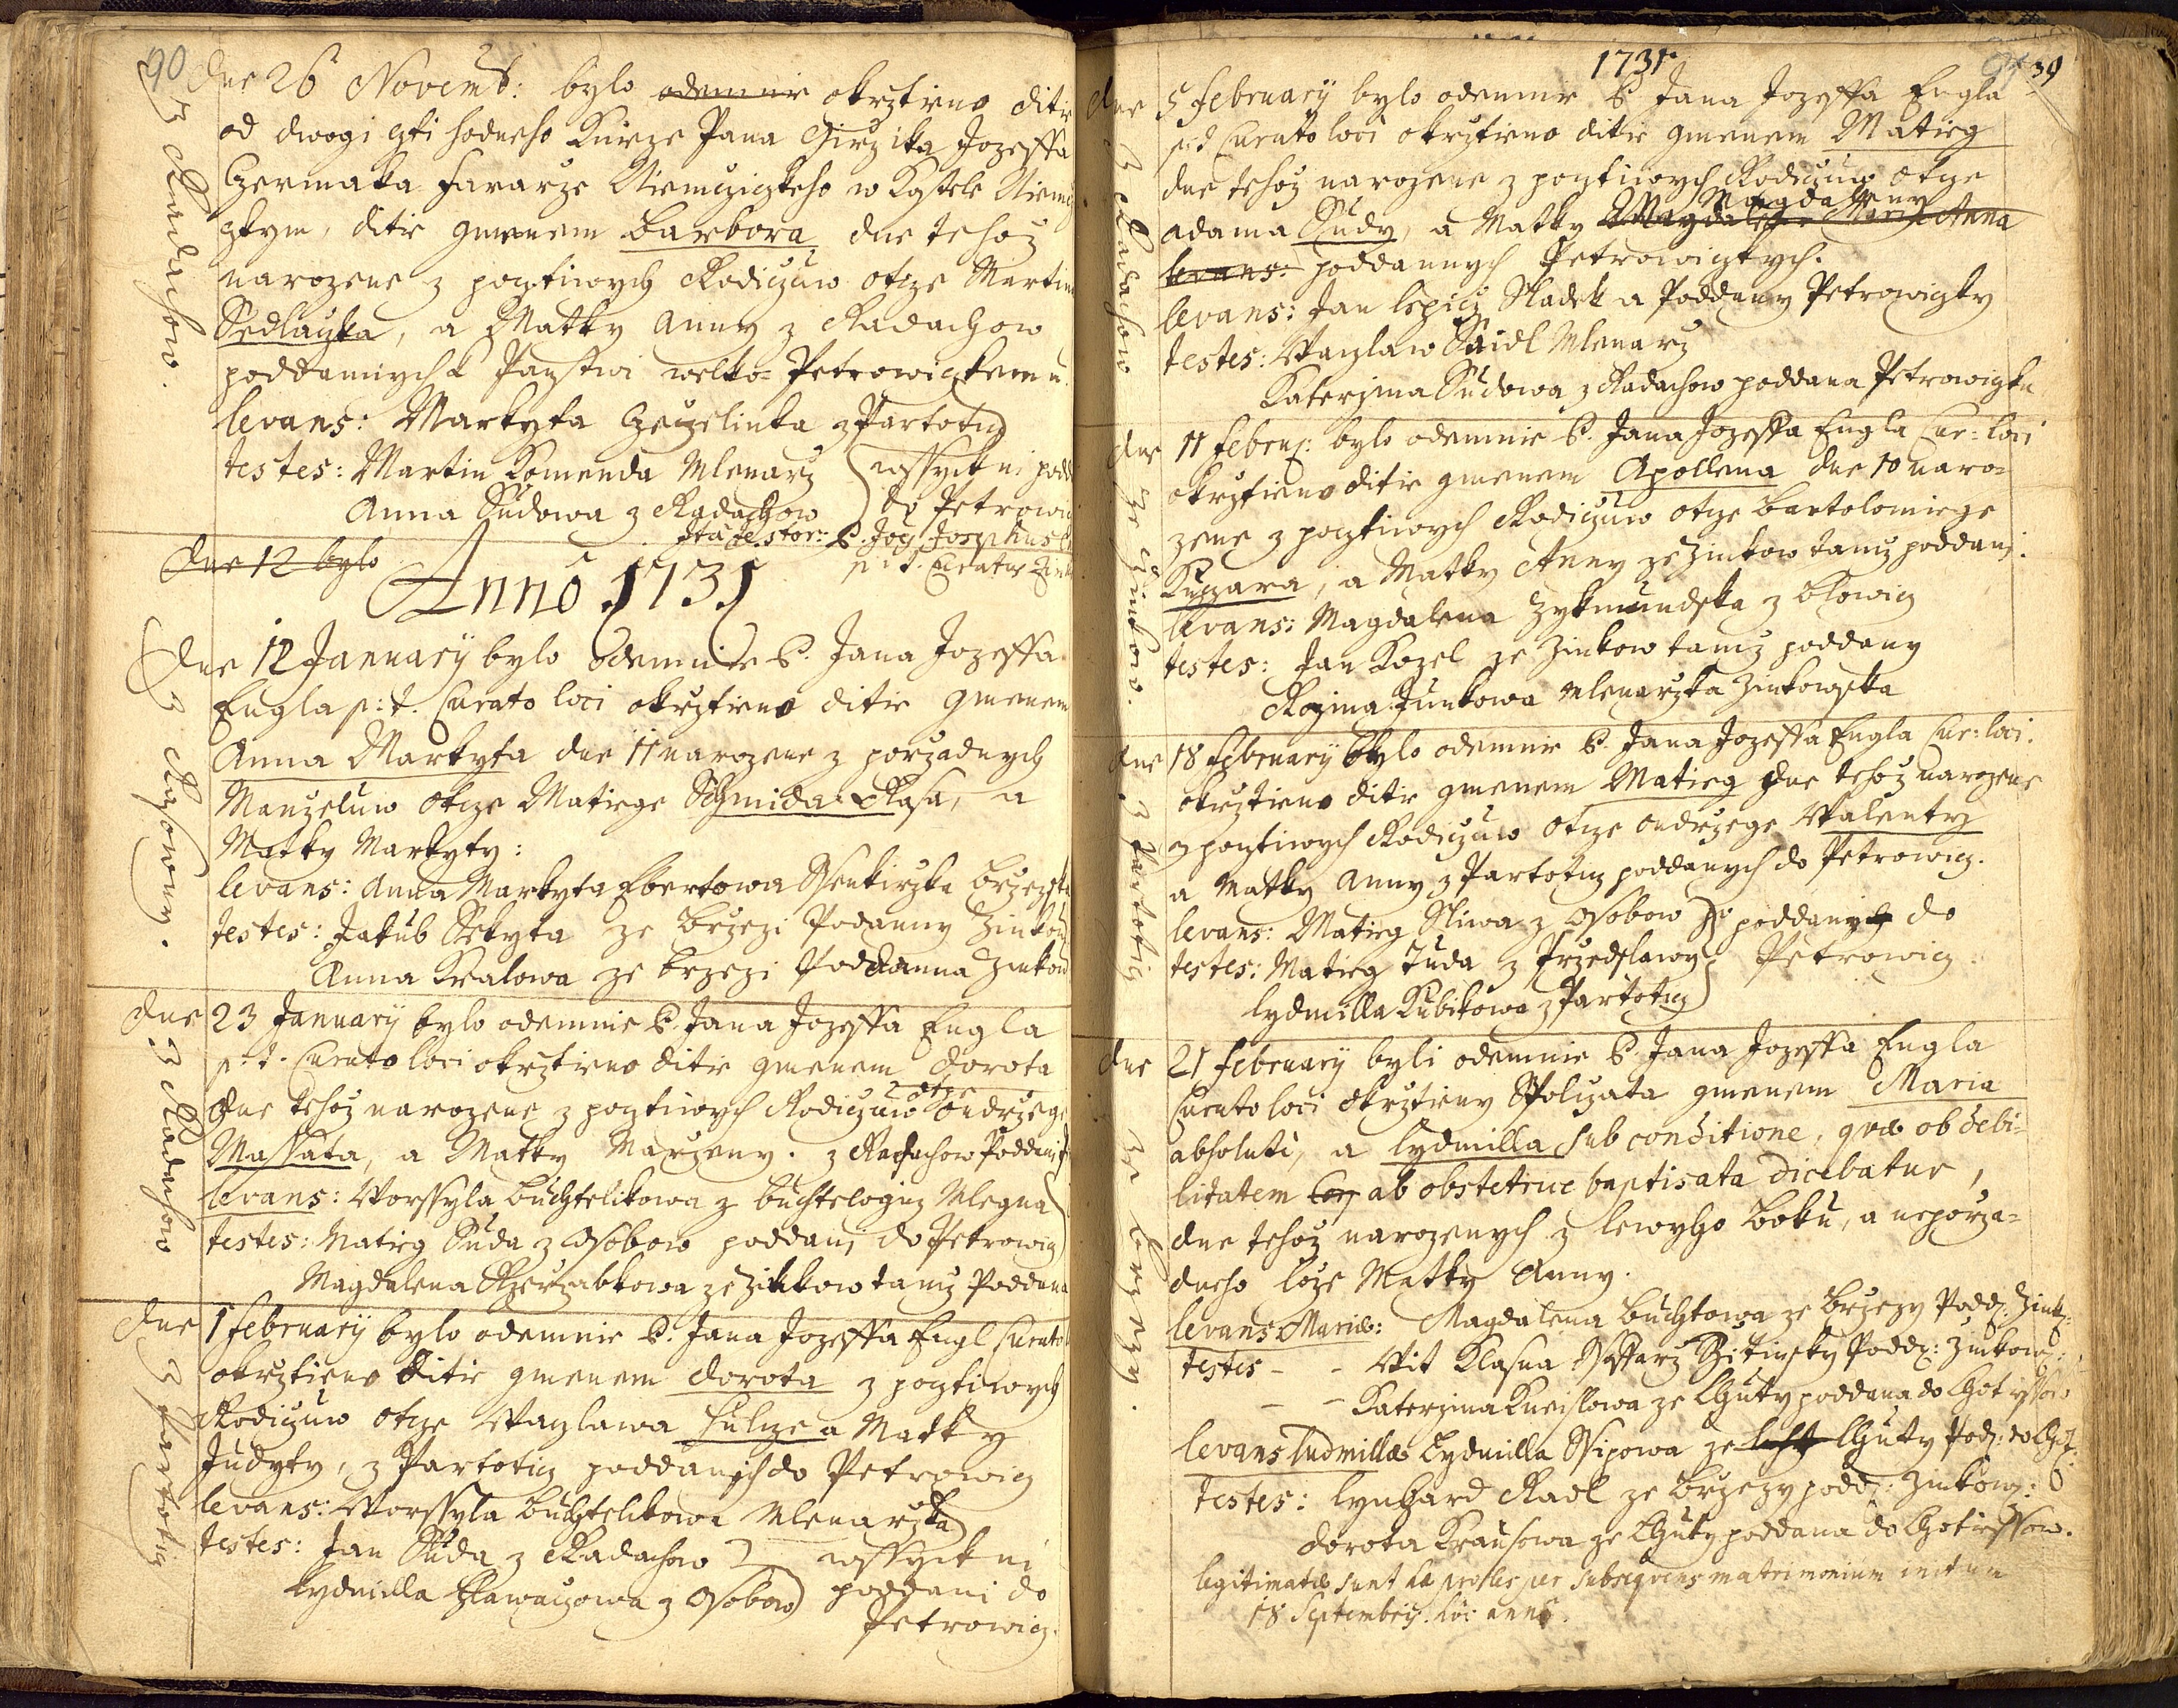 90
dne 26 Novemb: bylo odemnie okrztieno ditie
od dwogi czti hodneho Knieze Pana Girzika Jozeffa
Czermaka fararze Niemczickeho w Kostele Niemcz
czkym, ditie gmenem Barbora dne tehoz
narozene z pocztiwych Rodiczuw otcze Martina
Sedlaczka, a Matky Anny z Radachow
poddannych k Panstwi welko-Petrowiczkemu.
levans: Markyta Czeczelinka z Partoticz
testes: Martin Komenda Mlenarz wssyckni podd
Anna Sudowa z Radachow do Petrowicz
Ita testor: P. Joh Josephus E
p: t. Curatus Zink
z Radachow.
dne 12 bylo
Anno 1731
dne 12 January bylo odemnie P. Jana Jozeffa
Engla p: t. Curato loci okrztieno ditie gmenem
Anna Markyta dne 11 narozene z porzadnych
Manzeluw otcze Matiege Schmida Rasa, a
Matky Markyty:
levans: Anna Markyta Ebertowa Ssenkirzka Brzezska
testes: Jakub Sekyta ze Brzezi Podanny Zinkow
Anna Kralowa ze Brzezi Poddanna Zinkow
z Rasowny.
dne 23 January bylo odemnie P. Jana Jozeffa Engla
p: t. Curato loci okrztieno ditie gmenem Dorota
dne tehoz narozene z pocztiwych Rodiczuw otcze Ondrzege
Massata, a Matky Marzeny. z Radachow Poddanich
levans: Worssyla Buchtelikowa z Buchtelogicz Mlegna
testes: Matieg Suda z Osobow poddani do Petrowicz
Magdalena Rzerzabkowa ze Zinkow tamz Poddana
z Radachow
dne 1 February bylo odemnie P. Jana Jozeffa Engl Curato
okrztieno ditie gmenem Dorota z pocztiwych
Rodiczuw otcze Waczlawa Hulcze a Matky
Judyty, z Partoticz poddanich do Petrowicz
levans: Worssyla Buchtelikowa Mlenarzka
testes: Jan Suda z Radachow wssyckni
Lydmilla Hlawaczowa z Osobow poddani do
Petrowicz.
z Partoticz
1731
39
dne 5 February bylo odemnie P. Jana Jozeffa Engla
p: t Curato loci okrztieno ditie gmenem Matieg
dne tehoz narozene z pocztiwych Rodiczuw otcze
Magdaleny
Adama Sudy, a Matky Magdaleny Marie Anna
levans: poddannych Petrowiczkych.
levans: Jan Sladek a Poddany Petrowiczky
testes: Waczlaw Saidl Mlenarz
Katerzina Sudowa z Radachow poddana Petrowiczka
z Radachow
dne 11 Febru: bylo odemnie P. Jana Jozeffa Engla Cur: loci
okrztieno ditie gmenem Apollena dne 10 naro=
zene z pocztiwych Rodiczuw otcze Bartolomiege
Kuczara, a Matky Anny ze Zinkow tamz poddani.
levans: Magdalena Zykmundska z Blowicz
testes: Jan Kozel ze Zinkow tamz poddany
Rozina Junkowa Mlenarzka Zinkowska
ze Zinkow.
dne 18 February bylo odemnie P. Jana Jozeffa Engla Cur: loci.
okrztieno ditie gmenem Matieg dne tehoz narozene
z pocztiwych Rodiczuw otcze Ondrzege Walenty
a Matky Anny z Partoticz poddanych do Petrowicz.
levans: Matieg Sliwa z Osobow poddanych do
testes: Matieg Tuda z Przedslawy Petrowicz
Lydmilla Kubikowa z Partoticz
z Partoticz
dne 21 February byli odemnie P. Jana Jozeffa Engla
Curato loci okrztieny Spolczata gmenem Maria
absoluti, a Lydmilla sub conditione, quae ob debi=
litatem ab obstetrice baptisata dicebatur,
dne tehoz narozenych z lewyho Boku, a neporza=
dneho loze Matky Anny.
levans Mariae: Magdalena Buchtowa ze Brzezy Podd: Zink:
testes - - Wit Klasna Ssaffarz Zitinsky Podd: Zinkow:
- - Katerzina Kneislowa ze Lhuty poddana do Chotiessow
levans Ludmillae Lydmilla Ssipowa ze Lhuty Pod: do Chot:
testes: Lynhard Radl ze Brzezy podd: Zinkow:
Dorota Krausowa ze Lhuty poddana do Chotiessow.
legitimatae sunt hae proles per subsequens matrimonium initum
18 Septembris. hoc anno.
ze Brzezy.